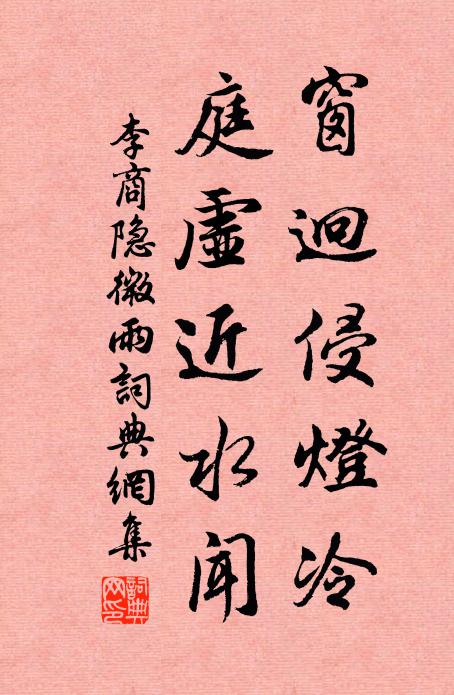 窗迥侵燈冷
庭虛近水闻
李商隐微雨詞典網集
詞典网印